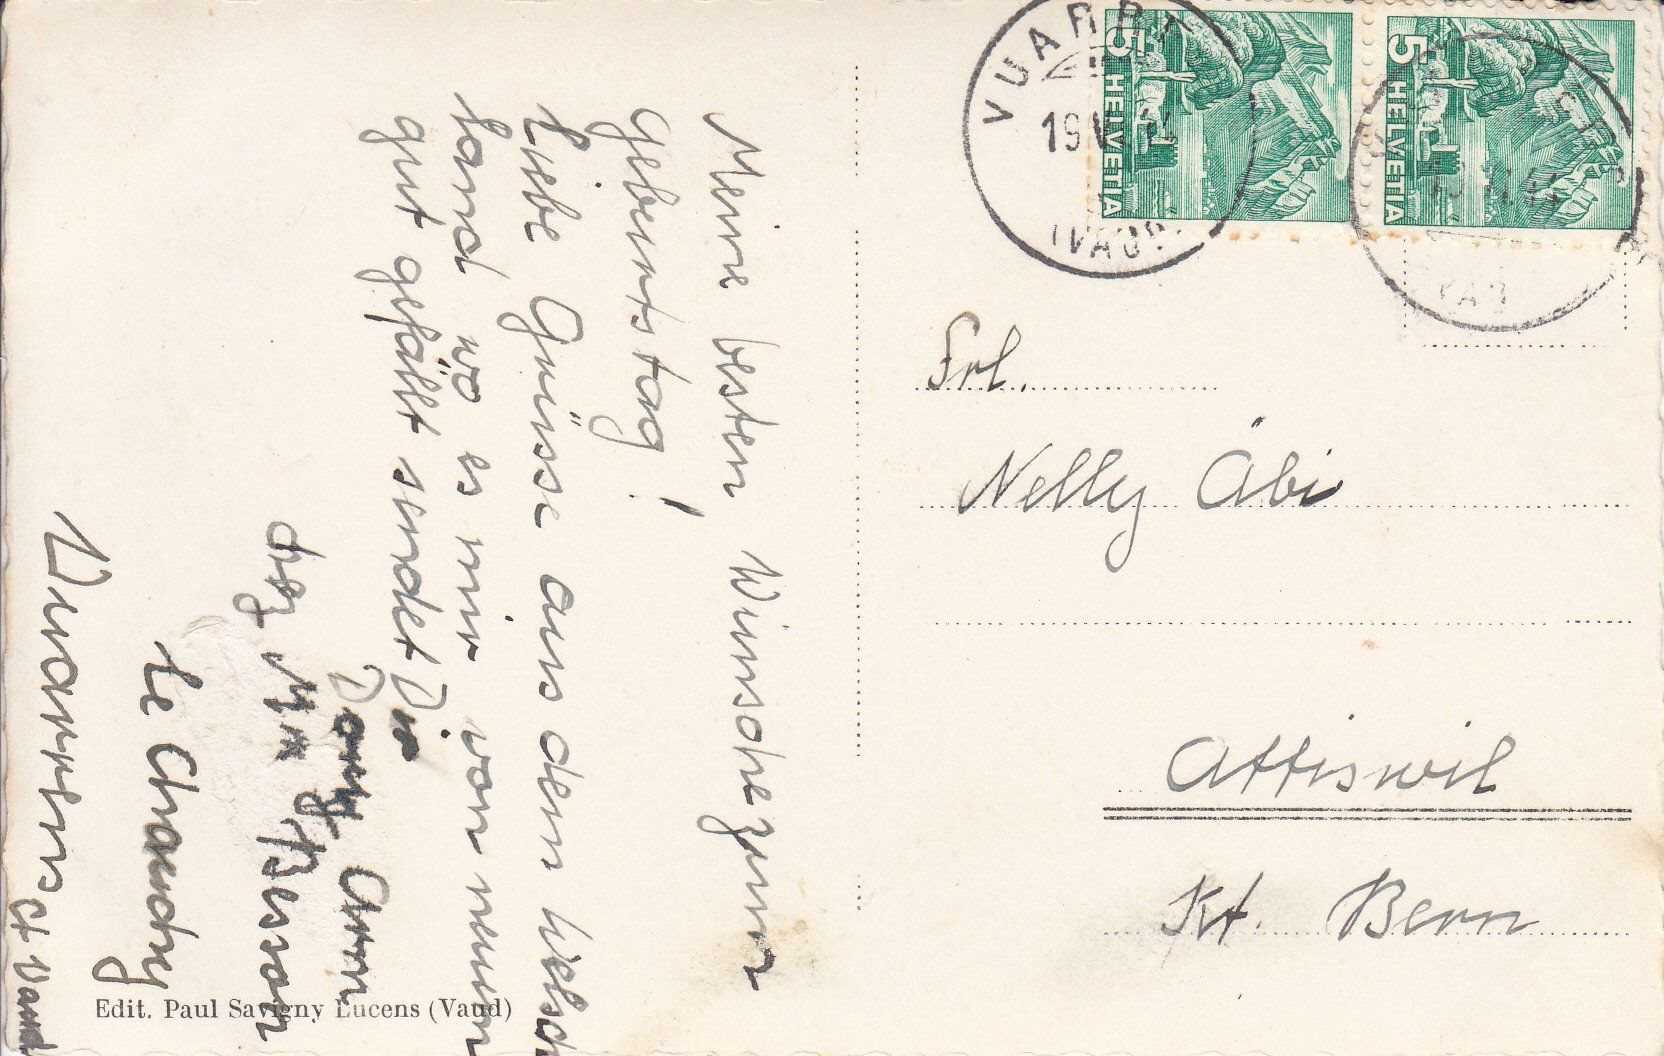 Meine besten Wünsche zum
Geburtstag!
Liebe Grüsse aus dem Welsch
land wo es mir von neuem
gut gefällt sendet Dir
chez Mm Besson
Le Chauchy
Vuarrens Ct Vaud
VUARR
19
(VAUD)
5 HELVETIA
5 HELVETIA
Frl.
Nelly Äbi
Attiswil
Kt. Bern
Edit. Paul Savigny Lucens (Vaud)